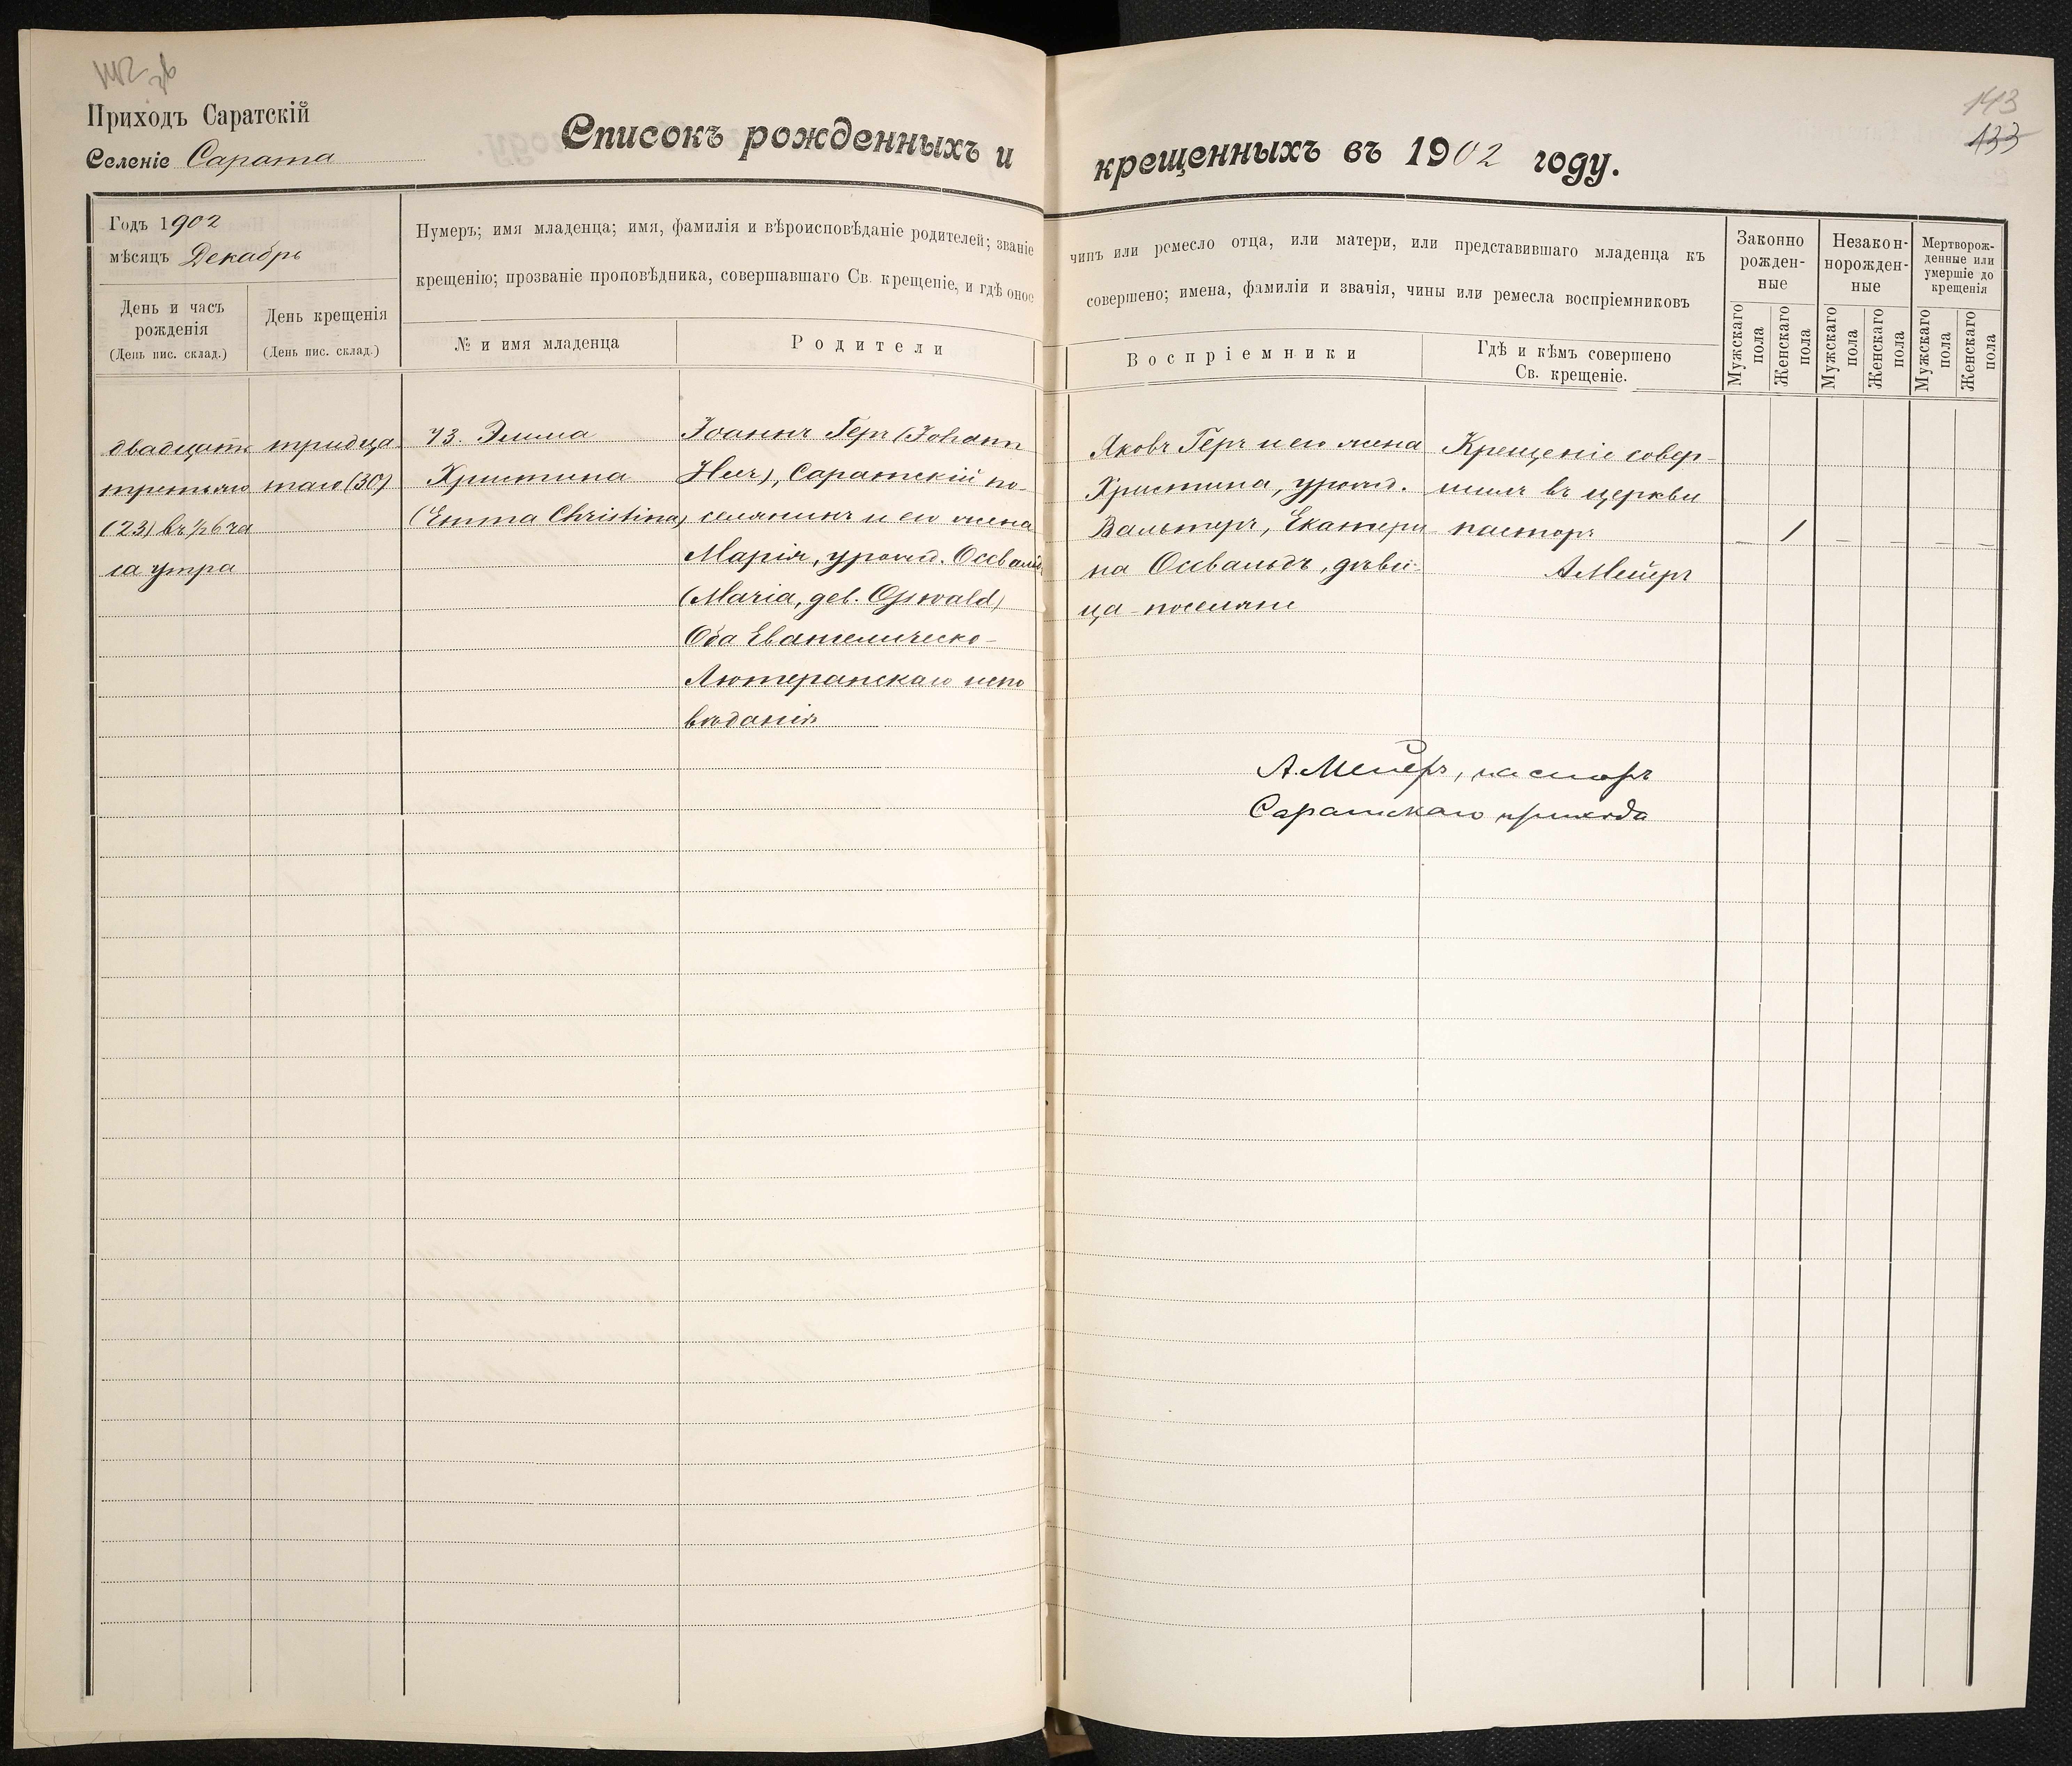 Приходъ Саратскій
Селеніе Сарата
Списокъ рожденныхъ и крещенныхъ въ 1902 году.
143
133
Годъ 1902
мѣсяцъ Декабрь
День и часъ
рожденія
(День пис. склад.)
День крещенія
(День пис. склад.)
Нумеръ; имя младенца; имя, фамилія и вѣроисповѣданіе родителей; званіе
крещенію; прозваніе проповѣдника, совершавшаго Св. крещеніе, и гдѣ оное
№ и имя младенца
Родители
чинъ или ремесло отца, или матери, или представившаго младенца къ
совершено; имена, фамиліи и званія, чины или ремесла воспріемниковъ
Воспріемники
Гдѣ и кѣмъ совершено
Св. крещеніе.
Законно
рожден-
ные
Незакон-
норожден-
ные
Мертворож-
денные или
умершіе до
крещенія
Мужскаго
пола
Женскаго
пола
Мужскаго
пола
Женскаго
пола
Мужскаго
пола
Женскаго
пола
двадцать
третьяго
(23) въ ½6 ча
са утра
тридца
таго (30)
73. Эмма
Христина
(Emma Christina)
Іоаннъ Геръ (Johann
Heer), Саратскій по-
селянинъ и его жена
Марія, урожд. Освальдъ
(Maria, geb. Oswald)
Оба Евангелическо-
Лютеранскаго испо
вѣданія
Яковъ Геръ и его жена
Христина, урожд.
Вальтеръ, Екатери
на Освальдъ, дѣви-
ца - поселяне
Крещеніе совер-
шилъ въ церкви
пасторъ
А Мейеръ
— 1 — — — —
А. Мейеръ, пасторъ
Саратскаго прихода